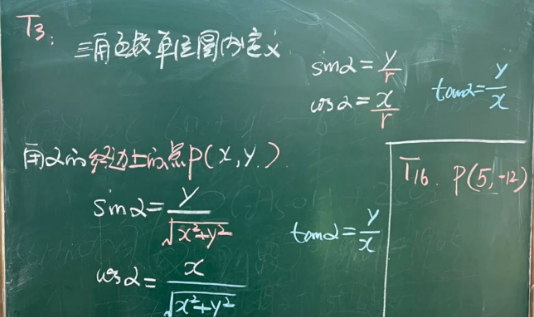 T3:
三角函数单位圆内定义
sinα=y/r
cosα=x/r
tanα=y/x
角α的终边上的点P(x,y)
sinα=y/√(x²+y²)
tanα=y/x
cosα=x/√(x²+y²)
T16. P(5,-12)